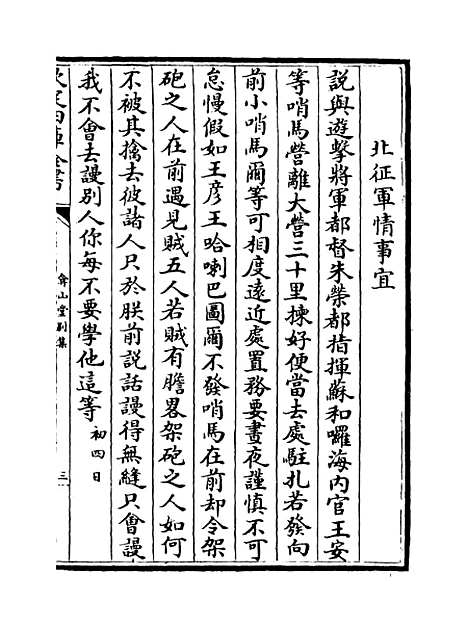 北征軍情事宜
說與遊擊將軍都督朱榮都指揮蘇和囉海內官王安
等哨馬營離大營三十里揀好便當去處駐扎若發向
前小哨馬爾等可相度遠近處置務要晝夜謹慎不可
怠慢假如王彥王哈喇巴圖爾不發哨馬在前却令架
砲之人在前遇見賊五人若賊有膽畧架砲之人如何
不被其擒去彼諸人只於朕前說話謾得無縫只會謾
我不會去謾別人你每不要學他這等 初四日
欽定四庫全書
弇山堂別集
三